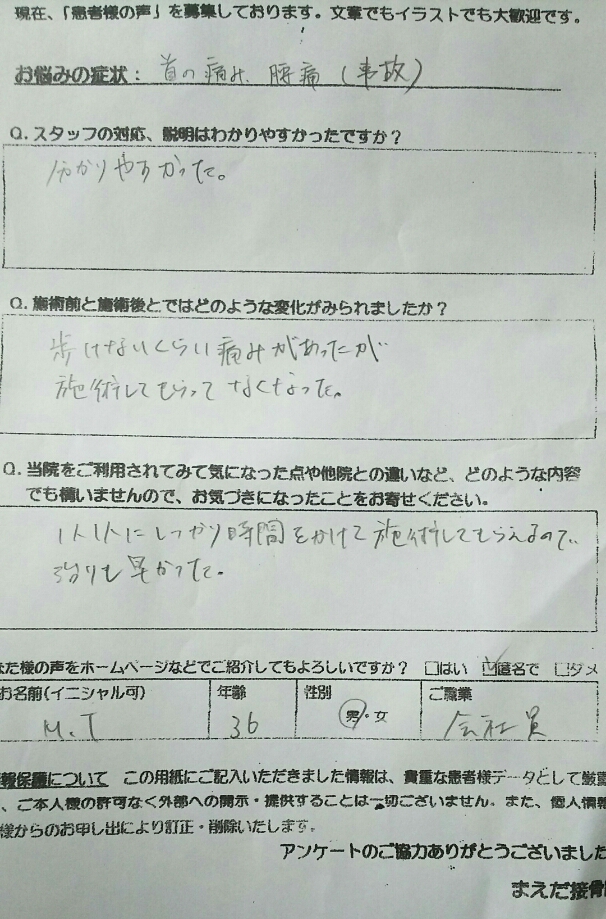 現在、「患者様の声」を募集しております。文章でもイラストでも大歓迎です。
お悩みの症状： 首の痛み、腰痛（事故）
Q. スタッフの対応、説明はわかりやすかったですか？
分かりやすかった。
Q. 施術前と施術後とではどのような変化がみられましたか？
歩けないくらい痛みがあったが
施術してもらってなくなった。
Q. 当院をご利用されてみて気になった点や他院との違いなど、どのような内容
でも構いませんので、お気づきになったことをお寄せください。
1人1人にしっかり時間をかけて施術してもらえるので、
治りも早かった。
なた様の声をホームページなどでご紹介してもよろしいですか？ □はい ☑匿名で □ダメ
お名前(イニシャル可) 年齢 性別 ご職業
M.T 36 男・女 会社員
報保護について この用紙にご記入いただきました情報は、貴重な患者様データとして厳重
、ご本人様の許可なく外部への開示・提供することは一切ございません。また、個人情報
様からのお申し出により訂正・削除いたします。
アンケートのご協力ありがとうございました
まえだ接骨